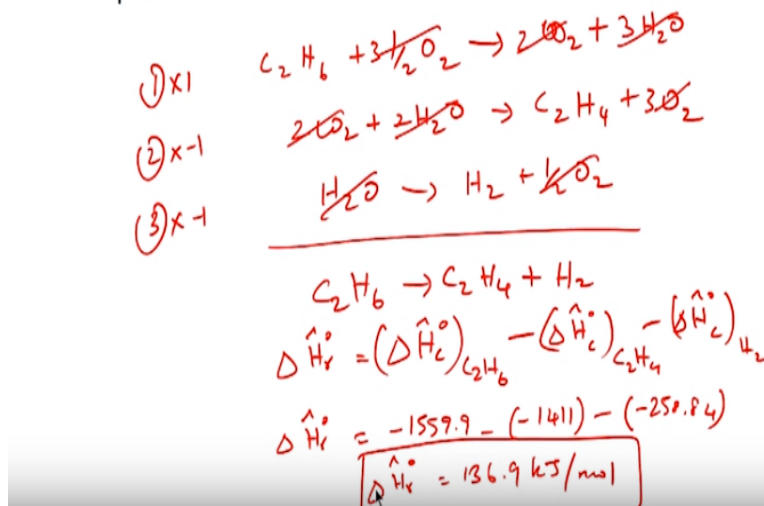 ①x1 C₂H₆ + 3½O₂ → 2CO₂ + 3H₂O
②x-1 2CO₂ + 2H₂O → C₂H₄ + 3O₂
③x-1 H₂O → H₂ + ½O₂
C₂H₆ → C₂H₄ + H₂
ΔĤᵣ° = (ΔĤ꜀°)C₂H₆ - (ΔĤ꜀°)C₂H₄ - (ΔĤ꜀°)H₂
ΔĤᵣ° = -1559.9 - (-1411) - (-250.84)
ΔĤᵣ° = 136.9 kJ/mol